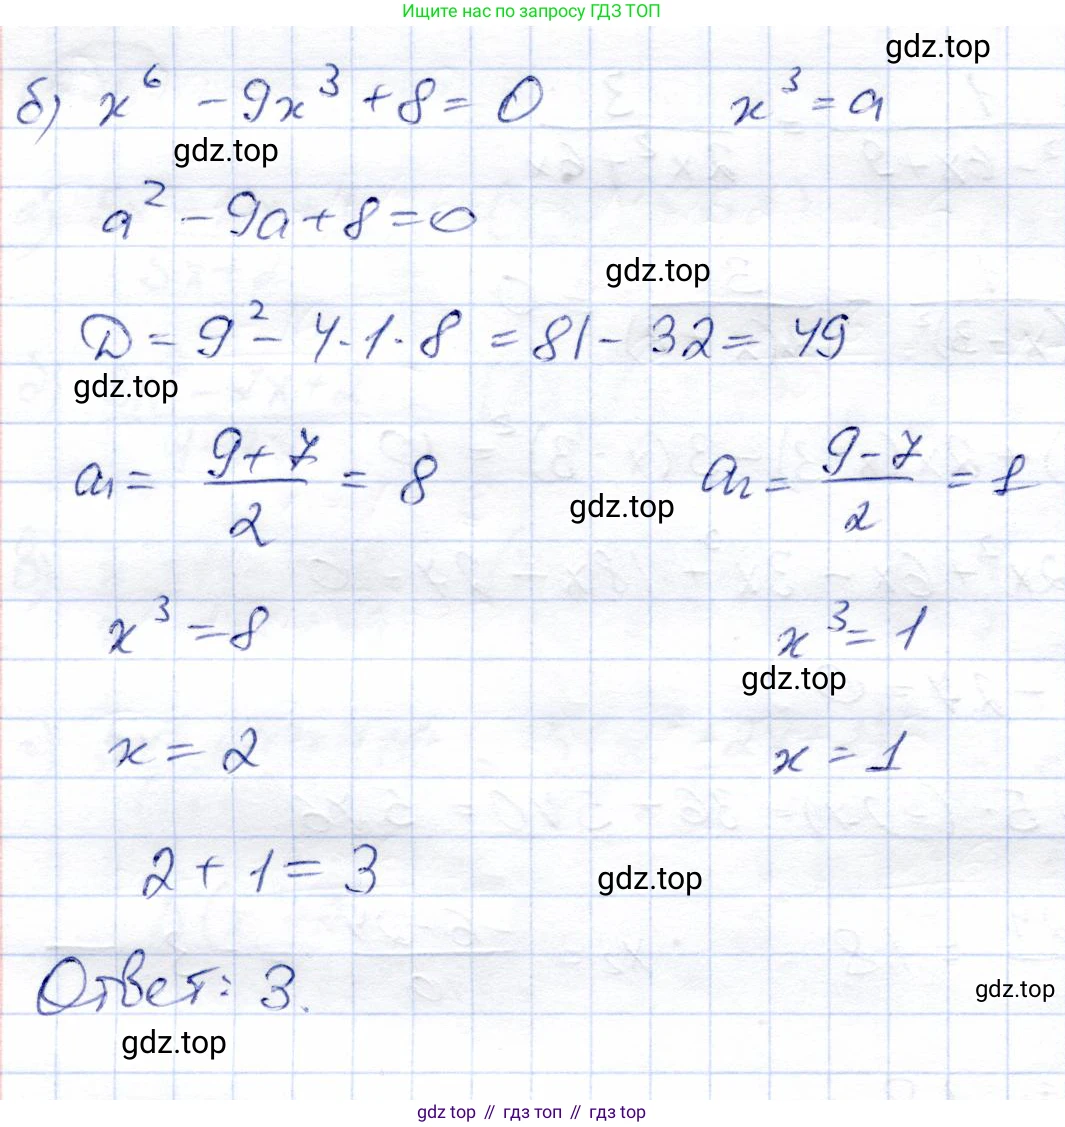 Ищите нас по запросу ГДЗ ТОП
gdz.top
б) x⁶ - 9x³ + 8 = 0 x³ = a
gdz.top
a² - 9a + 8 = 0
gdz.top
D = 9² - 4·1·8 = 81 - 32 = 49
gdz.top
a₁ = (9+7)/2 = 8 a₂ = (9-7)/2 = 1
gdz.top
x³ = 8 x³ = 1
gdz.top
x = 2 x = 1
2 + 1 = 3
gdz.top
Ответ: 3.
gdz.top
gdz.top
gdz top // гдз топ // гдз top